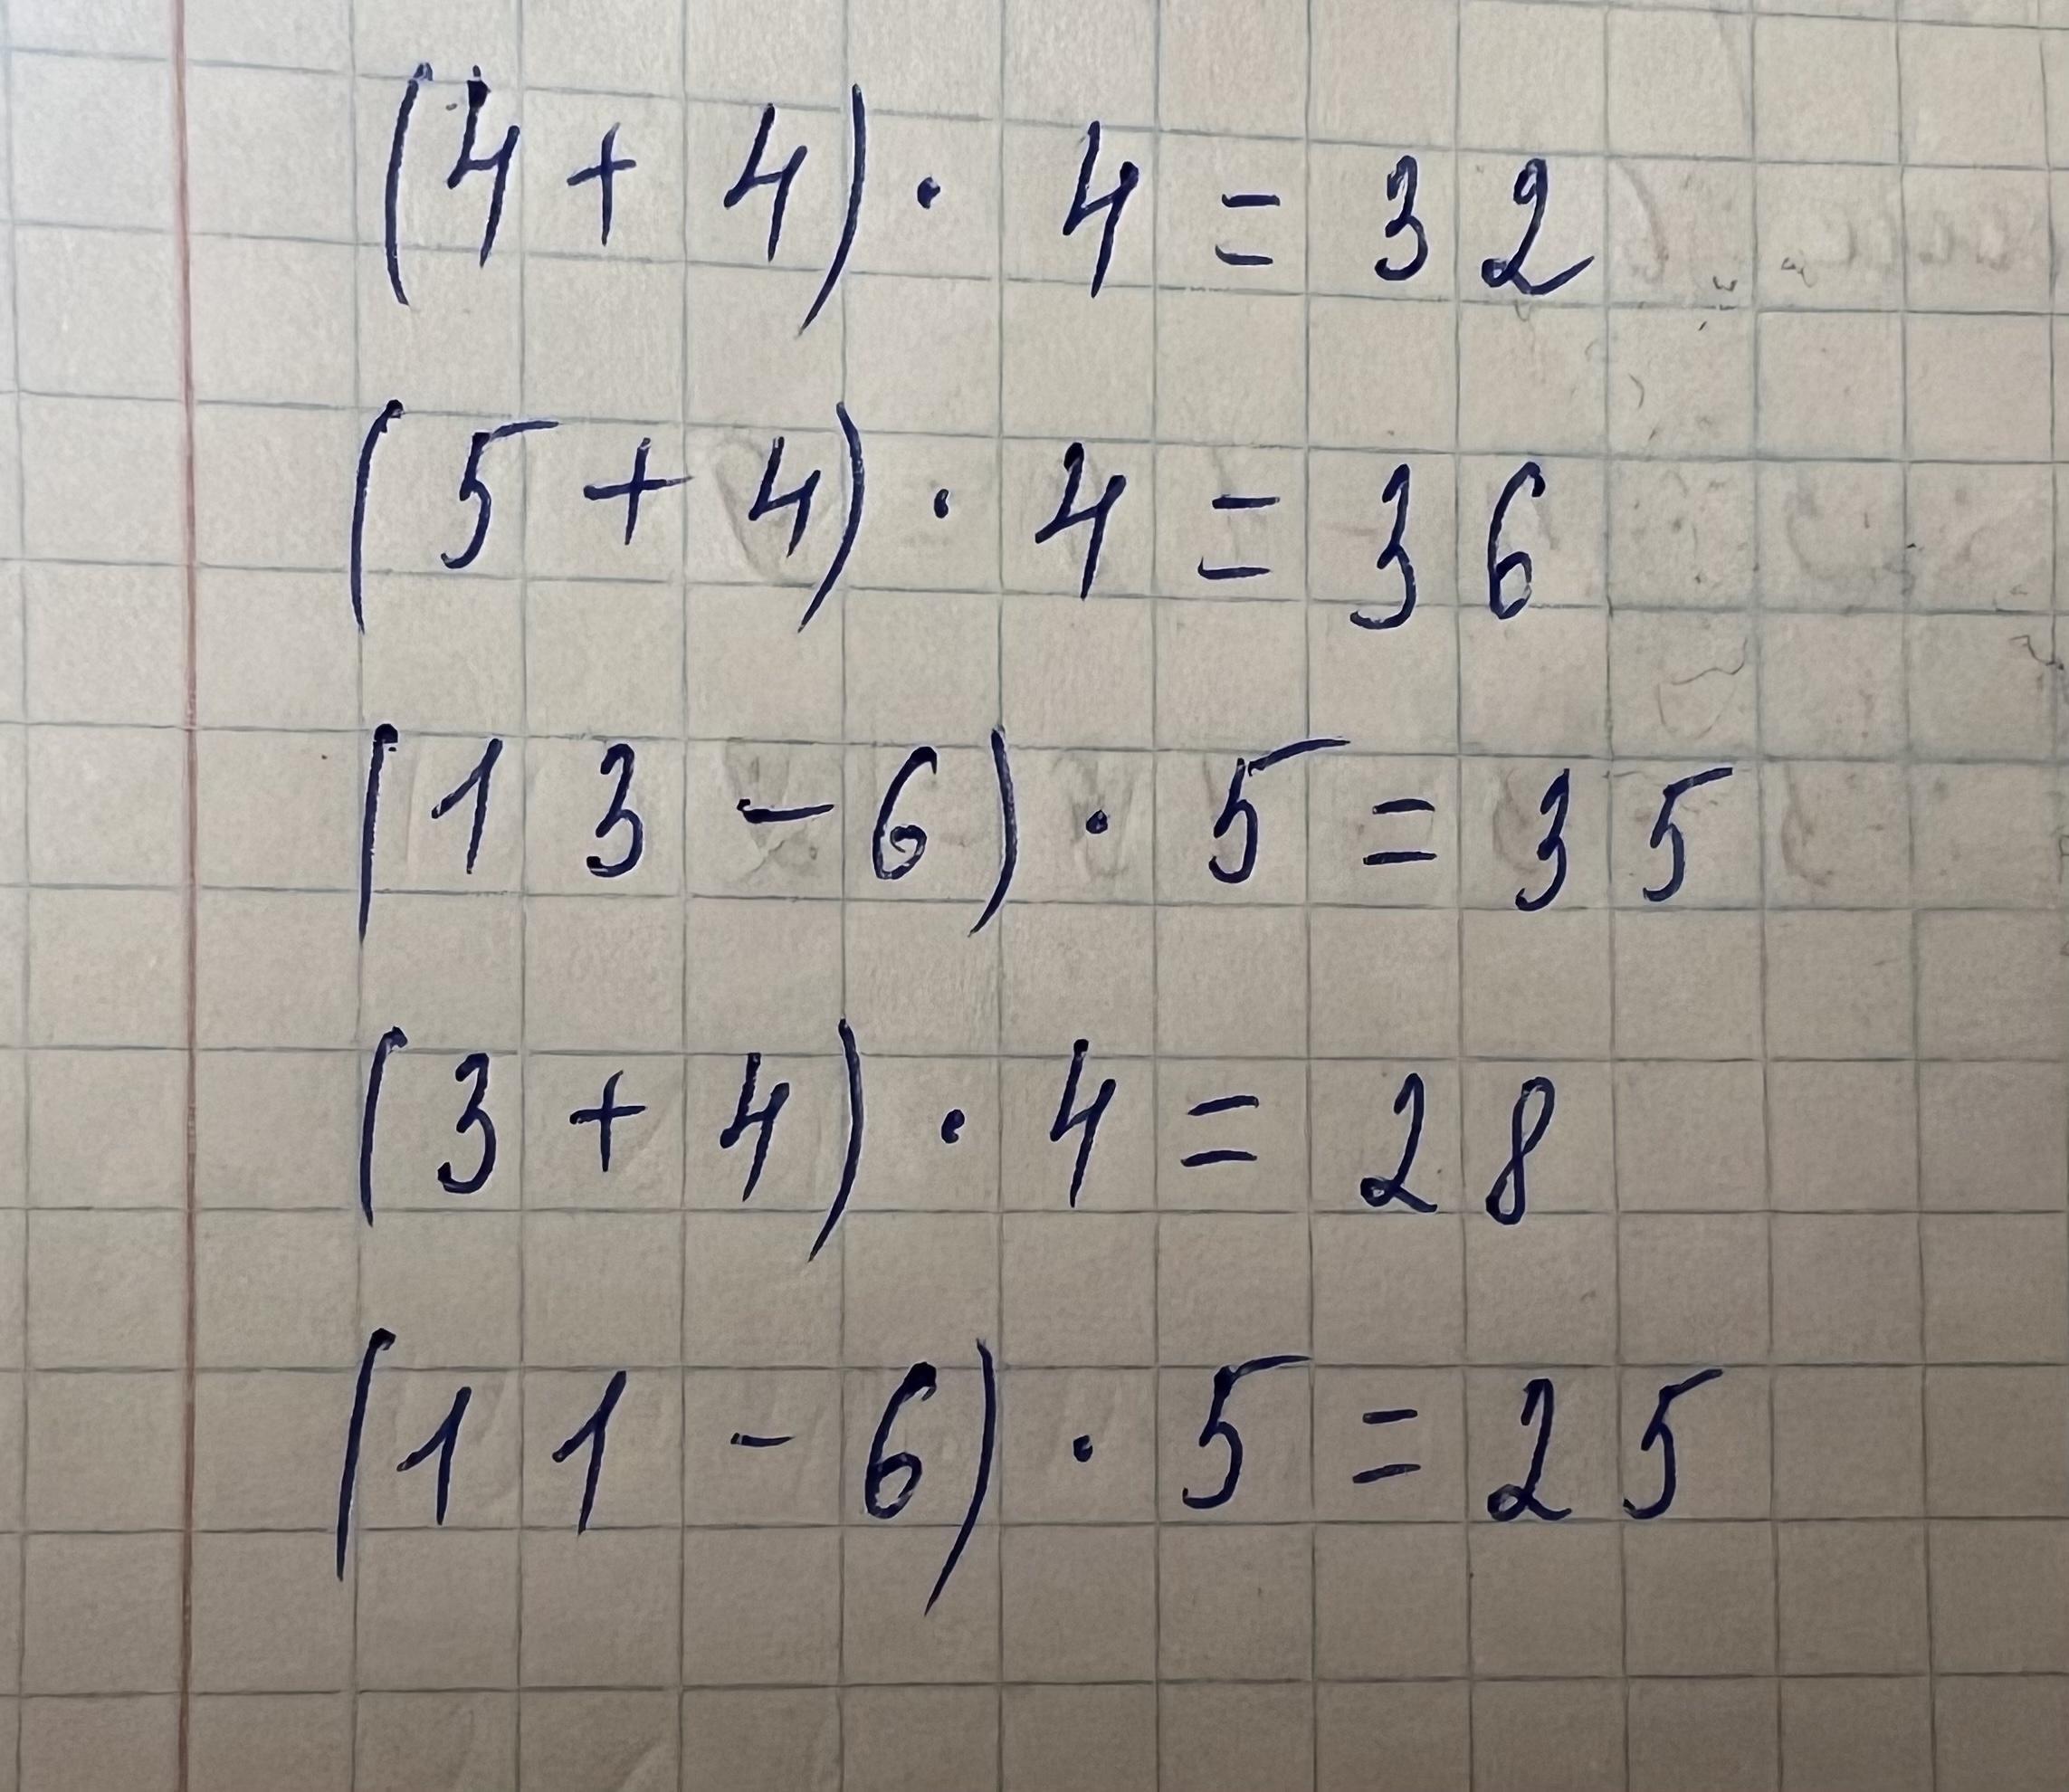 (4 + 4) · 4 = 32
(5 + 4) · 4 = 36
(13 - 6) · 5 = 35
(3 + 4) · 4 = 28
(11 - 6) · 5 = 25